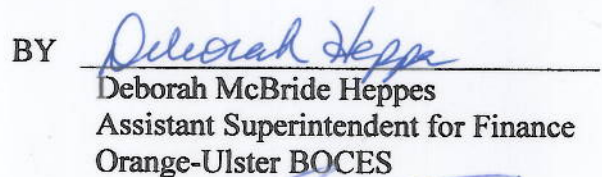 BY Deborah Heppes
Deborah McBride Heppes
Assistant Superintendent for Finance
Orange-Ulster BOCES